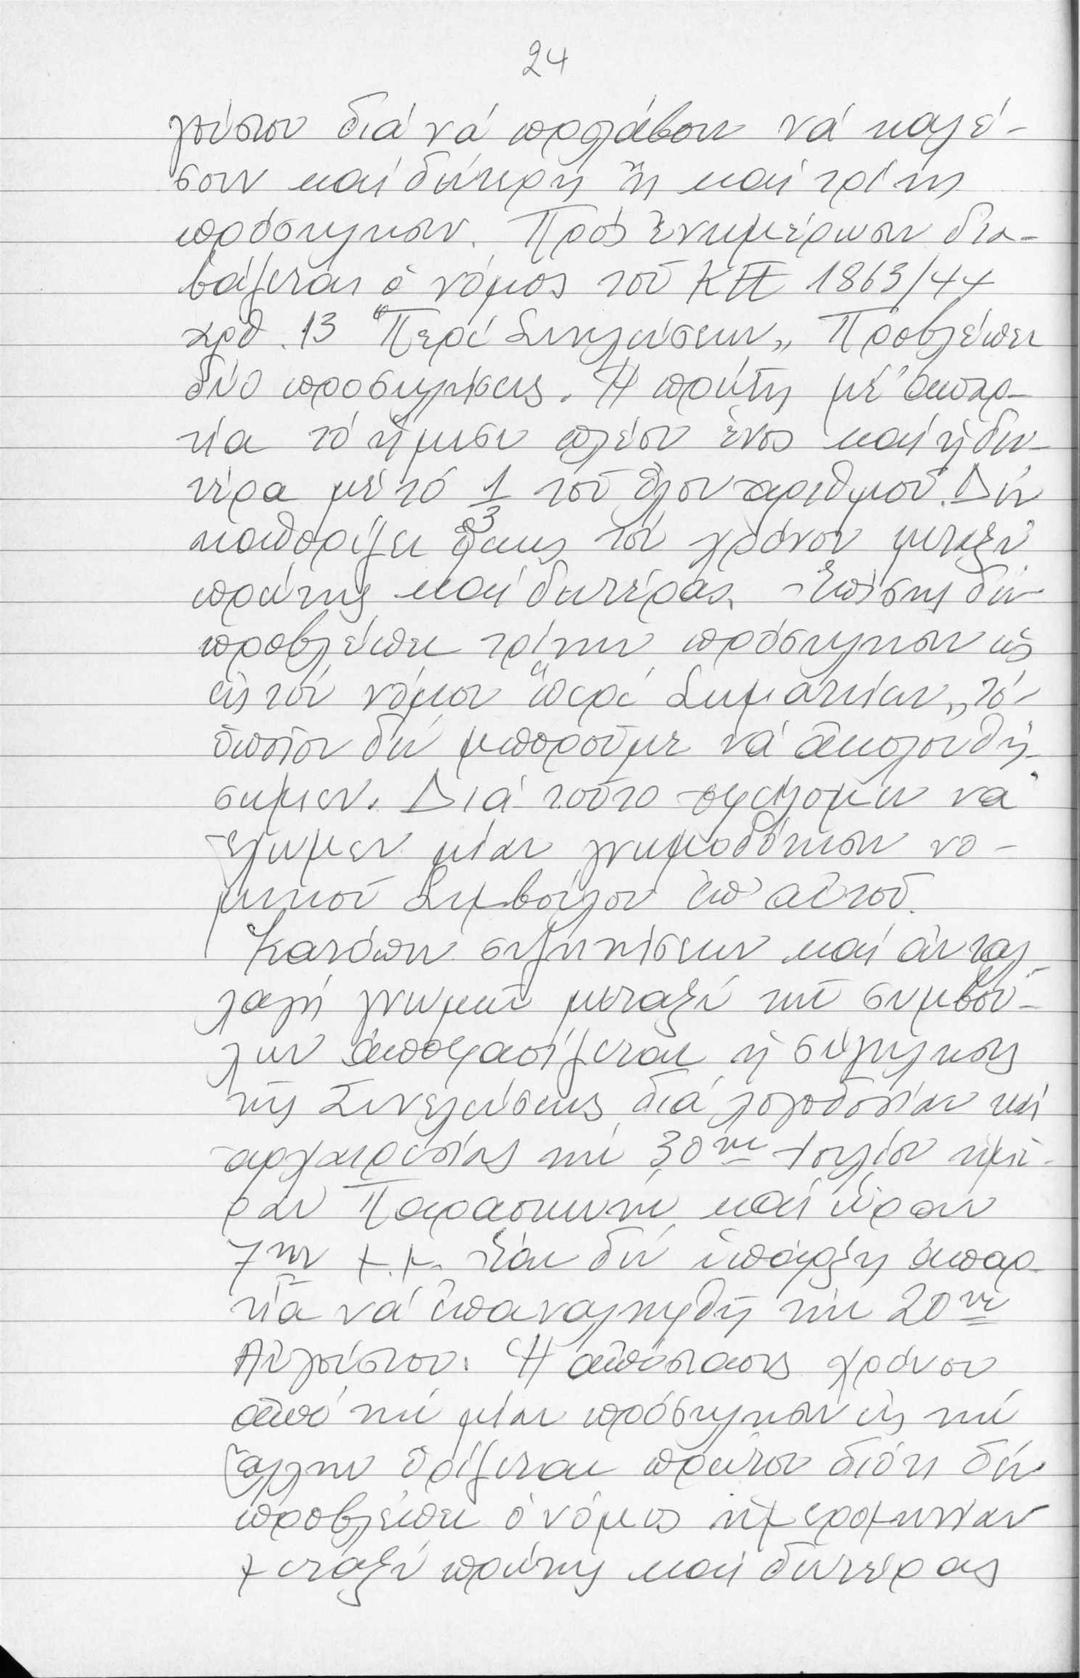 24
γούστου διά νά προλάβουν νά καλέ-
σουν καί δεύτερη ἤ καί τρίτη
πρόσκλησιν. Πρός ἐνημέρωσιν δια-
βάζεται ὁ νόμος τοῦ 1863/44
ἄρθ. 13 "Περί Συνελεύσεων„ Προβλέπει
δύο προσκλήσεις. Ἡ πρώτη μέ ἀπαρ-
τία τό ἥμισυ πλέον ἑνός καί ἡ δευ-
τέρα μέ τό 1/3 τοῦ ὅλου ἀριθμοῦ. Δέν
καθορίζει ὅμως τόν χρόνον μεταξύ
πρώτης καί δευτέρας. Ἐπίσης δέν
προβλέπει τρίτην πρόσκλησιν ὡς
εἰς τόν νόμον "περί Σωματείων„ τό
ὁποῖον δέν μποροῦμε νά ἀκολουθή-
σωμεν. Διά τοῦτο ὀφείλομεν νά
ἔχωμεν μίαν γνωμοδότησιν νο-
μικοῦ Συμβούλου ἐπ' αὐτοῦ.
Κατόπιν συζητήσεων καί ἀνταλ-
λαγή γνωμῶν μεταξύ τῶν συμβού-
λων ἀποφασίζεται ἡ σύγκλησις
τῆς Συνελεύσεως διά λογοδοσίαν καί
ἀρχαιρεσίας τήν 30ην Ἰουλίου ἡμέ-
ραν Παρασκευήν καί ὥραν
7ην μ.μ. Ἐάν δέν ὑπάρξη ἀπαρ-
τία νά ἐπαναληφθῆ τήν 20ην
Αὐγούστου. Ἡ ἀπόστασις χρόνου
ἀπό τήν μίαν πρόσκλησιν εἰς τήν
ἄλλην ὁρίζεται πρῶτον διότι δέν
προβλέπει ὁ νόμος ἡμερομηνίαν
μεταξύ πρώτης καί δευτέρας